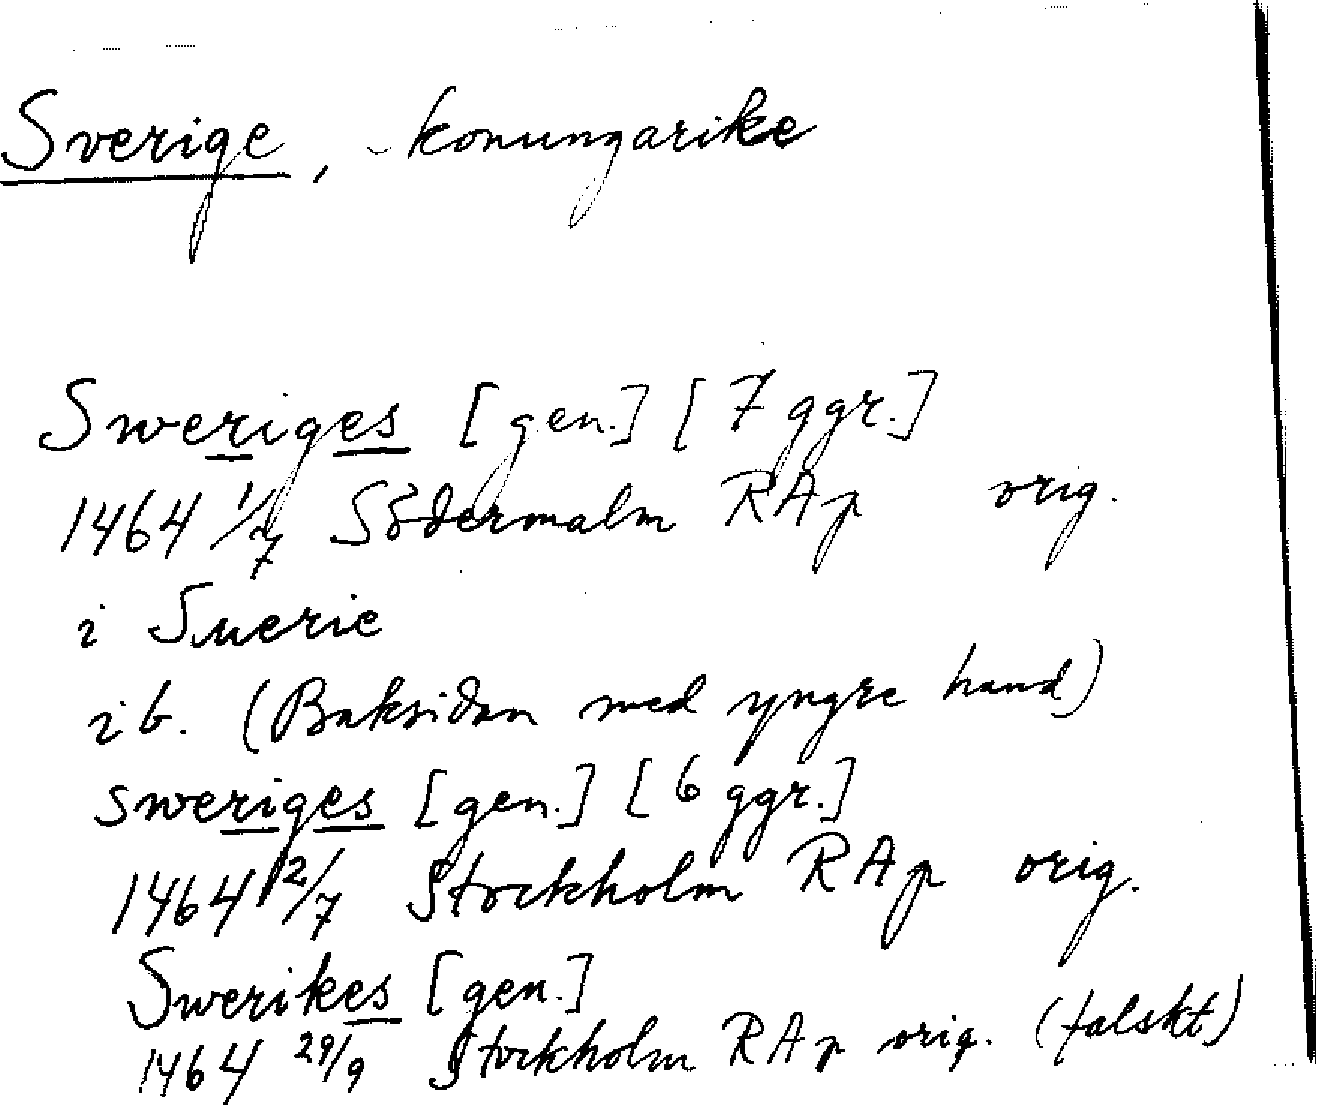 Sverige, konungarike
Sweriges [gen.] [7 ggr.]
1464 1/7 Södermalm RAp orig.
i Suerie
ib. (Baksidan med yngre hand)
sweriges [gen.] [6 ggr.]
1464 2/7 Stockholm RAp orig.
Swerikes [gen.]
1464 29/9 Stockholm RAp orig. (falskt)